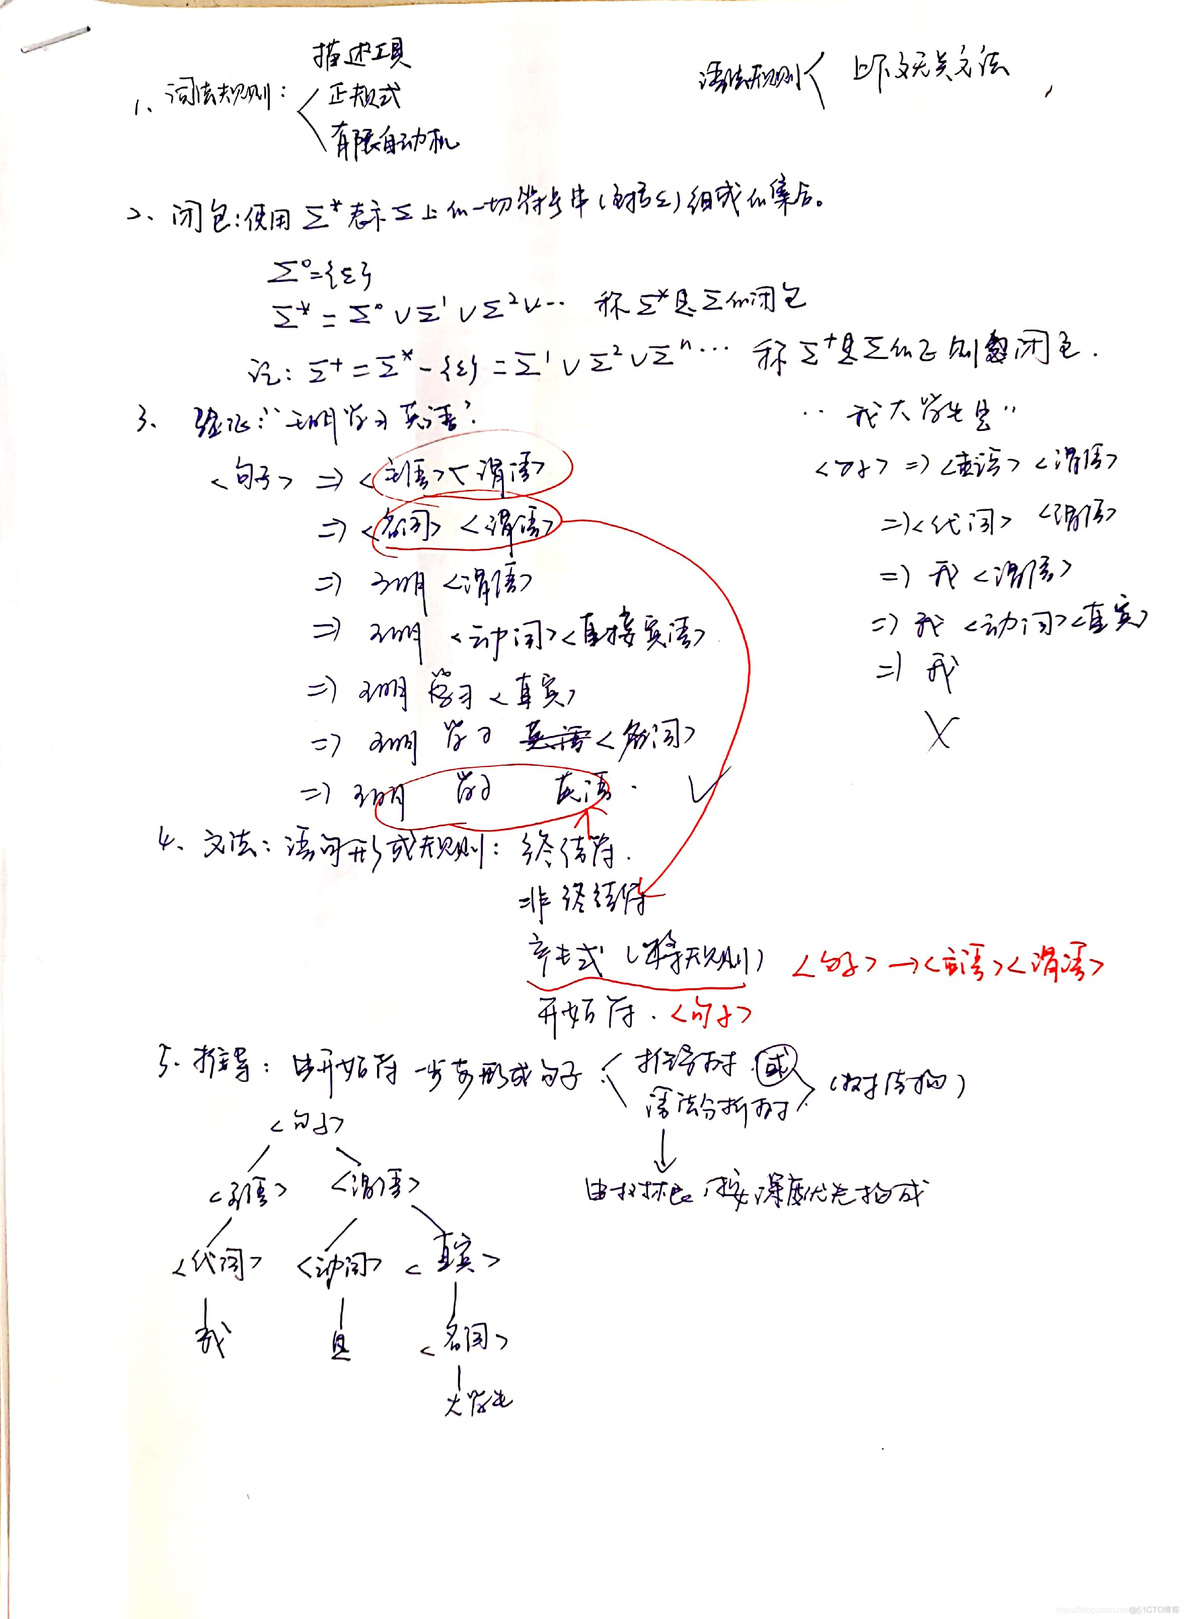 描述工具
1、词法规则: 正规式
有限自动机
语法规则 上下文无关文法
2、闭包:使用 Σ* 表示 Σ 上的一切符号串(包括ε)组成的集合。
Σ⁰={ε}
Σ* = Σ⁰ ∪ Σ¹ ∪ Σ² ∪ … 称 Σ* 是 Σ 的闭包
记: Σ⁺ = Σ* - {ε} = Σ¹ ∪ Σ² ∪ Σⁿ … 称 Σ⁺ 是 Σ 的正则闭包.
3、验证:“王明学习英语”
<句子> => <主语><谓语>
=> <名词> <谓语>
=> 王明 <谓语>
=> 王明 <动词><直接宾语>
=> 王明 学习 <直宾>
=> 王明 学习 英语 <名词>
=> 王明 学习 英语. ✓
“我大学生是”
<句子> => <主语> <谓语>
=> <代词> <谓语>
=> 我 <谓语>
=> 我 <动词><直宾>
=> 我
X
4、文法: 语句形成规则: 终结符.
非终结符
产生式 (规则) <句子> → <主语><谓语>
开始符. <句子>
5、推导: 由开始符一步步形成句子 推导树 或
语法分析树 (树结构)
由树根, 按深度优先构成
<句子>
<主语> <谓语>
<代词> <动词> <直宾>
我 是 <名词>
大学生
@51CTO博客